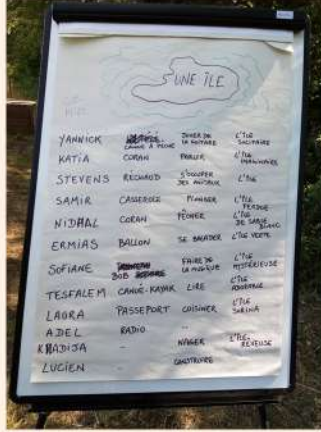 S'UNE ÎLE
YANNICK CANNE À PÊCHE JOUER DE LA GUITARE L'ÎLE SOLITAIRE
KATIA CORAN PARLER L'ÎLE IMAGINAIRE
STEVENS RÉCHAUD S'OCCUPER DES ANIMAUX L'ÎLE
SAMIR CASSEROLE L'ÎLE PERDUE
NIDHAL CORAN PÊCHER L'ÎLE DE SABLE BLANC
ERMIAS BALLON SE BALADER L'ÎLE VERTE
SOFIANE BOB FAIRE DE LA MUSIQUE L'ÎLE MYSTÉRIEUSE
TESFALEM CANOË-KAYAK LIRE L'ÎLE
LAORA PASSEPORT CUISINER L'ÎLE SABINA
ADEL RADIO "
KHADIJA " NAGER L'ÎLE REVEUSE
LUCIEN CONSTRUIRE